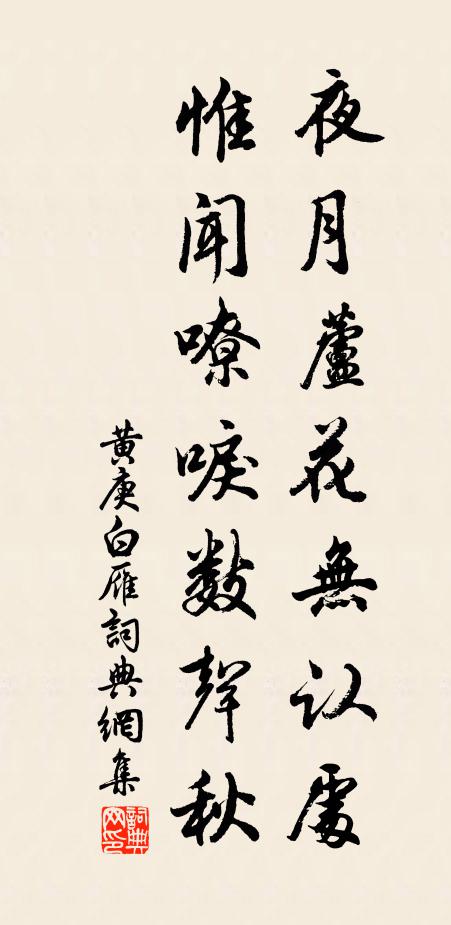 夜月蘆花無认處
惟闻嘹唳数聲秋
黄庚白雁詞典網集
詞典网印